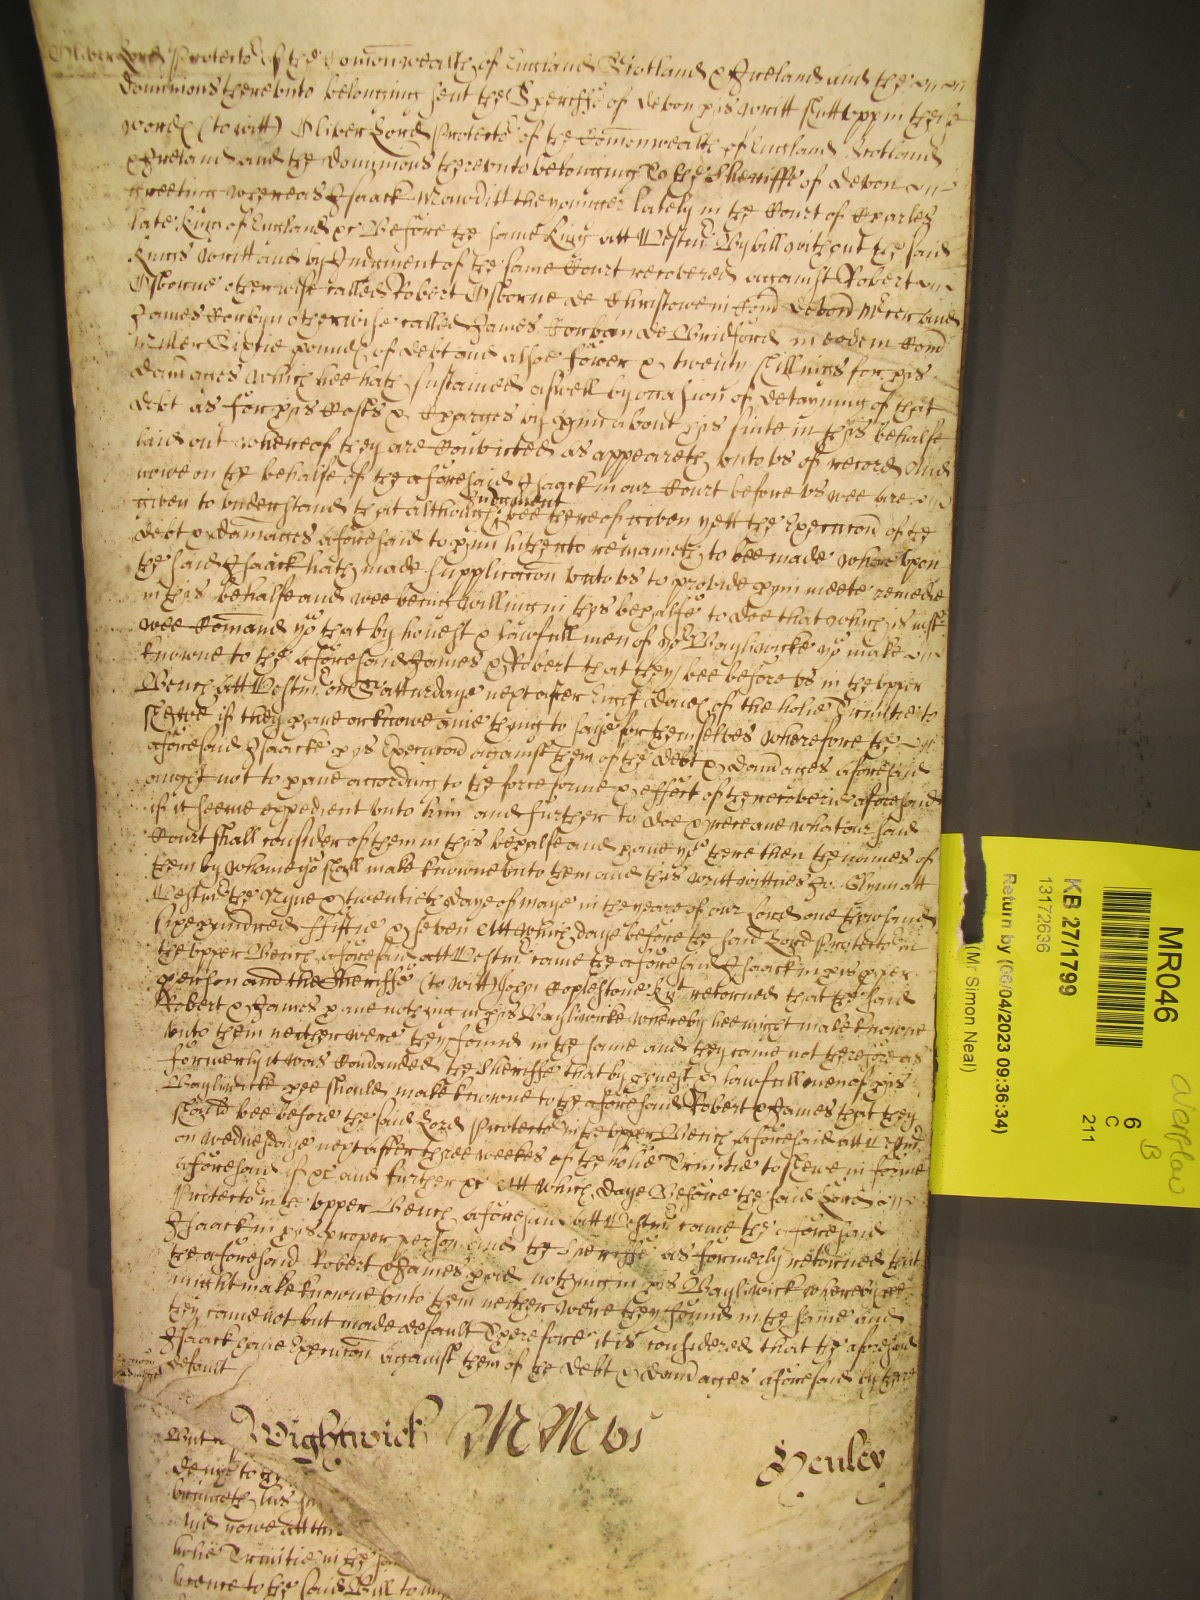 Oliver Lord Protector of the Comonwealth of England Scotland & Ireland and the
dominions thereunto belonging sent the Sheriffe of Devon his writt shutt upp in theis
words (to witt) Oliver Lord Protector of the Comonwealth of England Scotland
& Ireland and the dominions thereunto belonging To the Sheriffe of Devon
greeting whereas Isaack the younger lately in the Court of Charles
late King of England &c Before the same King att Westmr By bill without the said
Kings writt and by Judgment of the same Court recovered against Robert
Osborne otherwise called Robert Osborne de Christowe in Com Devon and
James Corbyn otherwise called James Corban de Bridford in eodem Com
Sixtie pounds of debt and alsoe fower & twenty shillings for his
damages which hee hath sustained aswell by occasion of detayning of that
debt as for his Costs & Charges by him about his suite in this behalfe
laid out whereof they are Convicted as appeareth unto us of record And
nowe on the behalfe of the aforesaid Isaack in our Court before us wee are
given to understand that although Judgment bee thereof given yett the Execucon of the
debt & damages aforesaid to him hitherto remaineth to bee made whereupon
the said Isaack hath made supplicacon unto us to provide him meete remedie
in this behalfe and wee being willing in this behalfe to doe that which is just
wee Comand yo that by honest & lawfull men of yor Baylywicke yo make
knowne to the aforesaid James & Robert that they bee before us in the upper
Bench att Westmr on Satturdaye next after Eight dayes of the holie Trinitie to
shewe if they have or knowe anie thing to saye for themselves wherefore the
aforesaid Isaacke his Execucon against them of the debt & damages aforesaid
ought not to have according to the force forme & effect of the recoverie aforesaid
if it seeme expedient unto him and further to doe & receave what our said
Court shall consider of them in this behalfe and have yo there then the names of
them by whome yo shall make knowne unto them and this writt wittnes Jo: Glynn att
Westmr the Nyne & twentieth daye of Maye in the yeare of our Lord one thowsand
sixe hundred Fiftie & seven Att which daye before the said Lord Protector in
the upper Bench aforesaid att Westmr came the aforesaid Isaack in his proper
person and the Sheriffe (to witt) John Coplestone Kt returned that the said
Robert & James have nothing in his Baylywicke whereby hee might make knowne
unto them neither were they found in the same and they came not therefore as
formerly it was Comanded the Sheriffe that by honest & lawfull men of his
Baylywicke hee should make knowne to the aforesaid Robert & James that they
should bee before the said Lord Protector in the upper Bench aforesaid att Westmr
on wednesdaye next after three weekes of the holie Trinitie to shewe in forme
aforesaid if &c and further &c Att which daye Before the said Lord
Protector in the upper Bench aforesaid att Westmr came the aforesaid
Isaack in his proper person and the Sheriffe as formerly returned that
the aforesaid Robert & James had nothing in his Baylywick whereby hee
might make knowne unto them neither were they found in the same and
they came not but made default Therefore it is considered that the aforesaid
Isaack have Execucon against them of the debt & damages aforesaid by there
default
Wightwick
Henley
And nowe att
holie Trinitie in the
to the said Bill
MR046
KB 27/1799
13172636
6
C
211
B
Return by (06/04/2023 09:36:34)
(Mr Simon Neal)